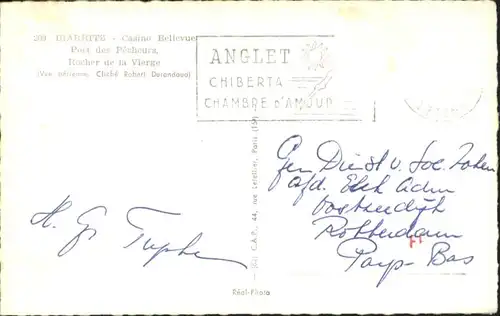 209 BIARRITZ - Casino Bellevue
Port des Pêcheurs,
Rocher de la Vierge
(Vue aérienne, Cliché Robert Durandaud)
ANGLET
CHIBERTA
CHAMBRE d'AMOUR
Gem Dienst v. Soc. Zaken
afd. Elek Adm
Oostzeedijk
Rotterdam
Pays-Bas
H. Gr
C.A.P., 44, rue Letellier, Paris (15e)
Réel-Photo